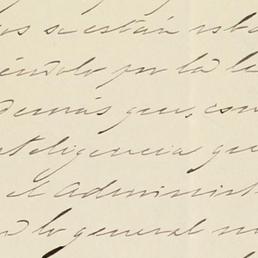 os se están
éndolo por la le
demás que, con
nteligencia que
el Administ
lo general